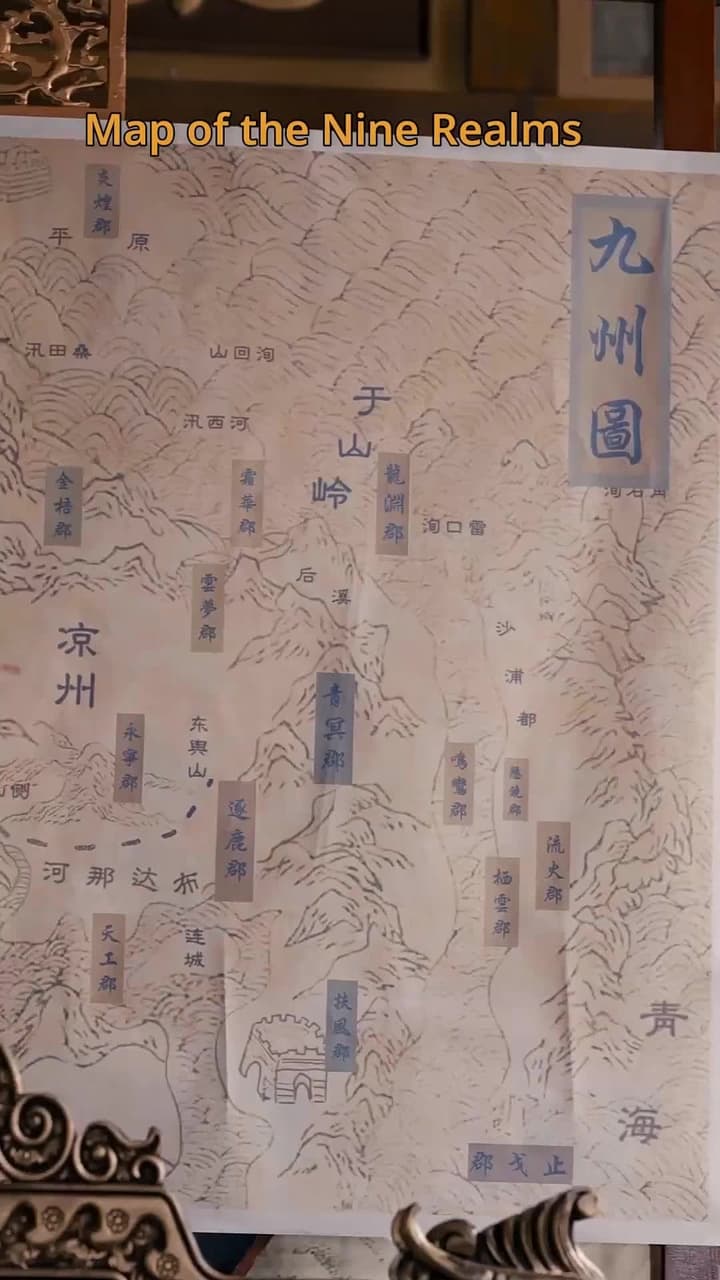 Map of the Nine Realms
九州圖
炎煌郡
平原
汛田桑
山回洵
汛西河
于山岭
金梧郡
霜華郡
龍淵郡
洵口雷
雲夢郡
后溪
沙浦都
凉州
青冥郡
永寧郡
东舆山
鳴鸞郡
逐鹿郡
流火郡
栖雲郡
河那达布
天工郡
连城
扶風郡
青海
郡戈止